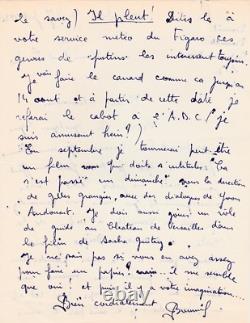 le savez) Il pleut! Dites le à
votre service meteo du Figaro ces
genres de "potins" les interessent toujours.
Je vais faire le canard comme ça jusqu'au
14 aout. et à partir de cette date je
referai le cabot à l'A.B.C. (Je
suis amusant hein?)
En septembre je tournerai peut être
un film qui doit s'intituler "Ca
s'est passé un dimanche" sous la direction
de Gilles Grangier, avec des dialogues de Yvan
Audouard. Je dois aussi jouer un rôle
de guide au Chateau de Versailles dans
le film de Sacha Guitry.
Je ne sais pas si vous en avez assez
pour faire un papier? il me semble
que oui! et puis il y a votre imagination...
Bien cordialement Bourvil